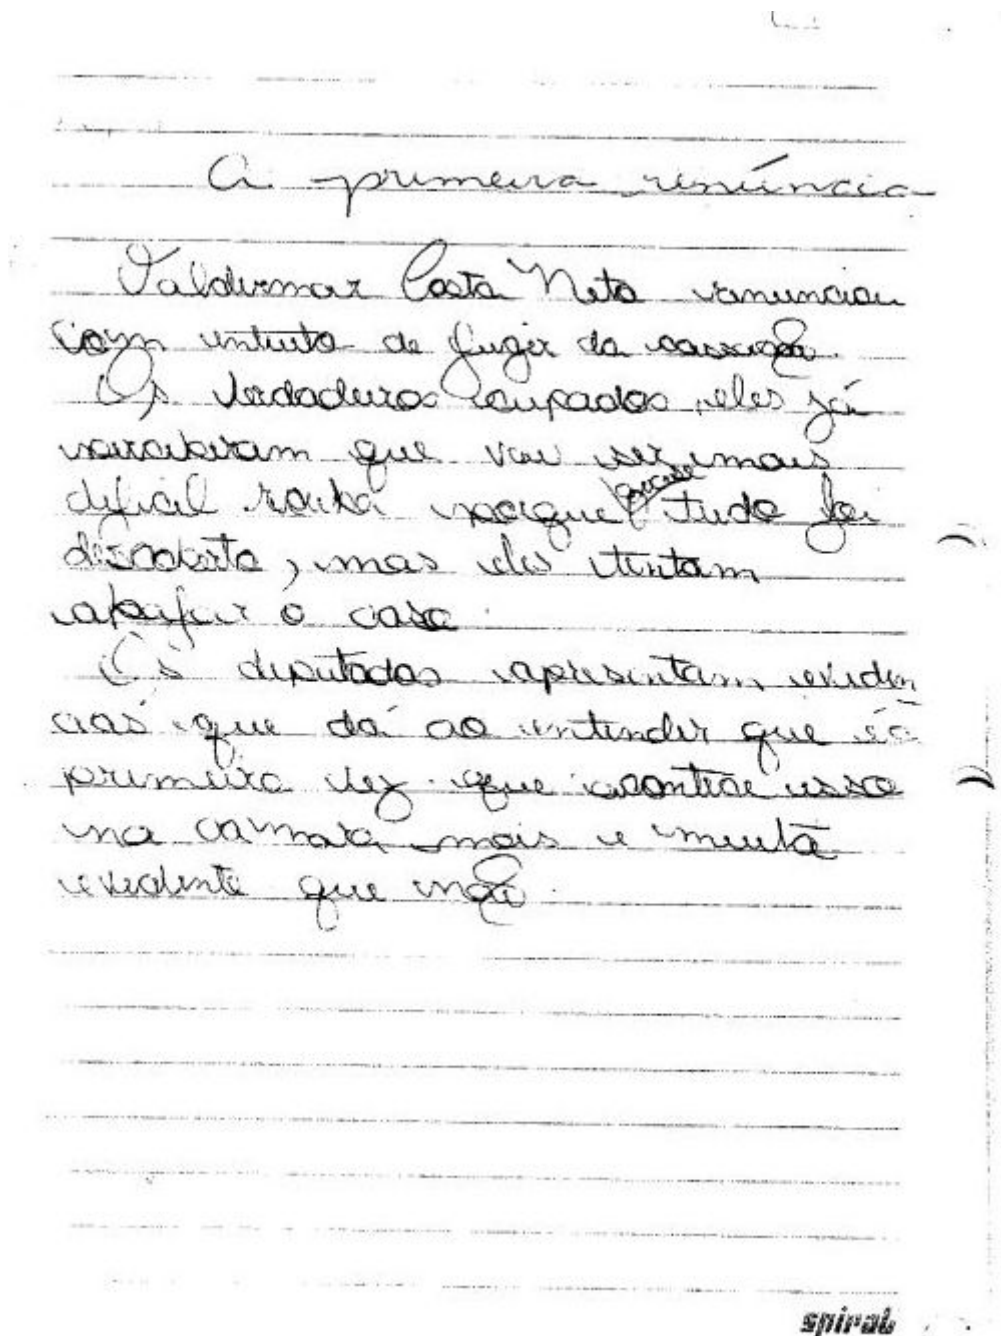 A primeira renúncia
Valdermar Costa Neto renunciou
com intuito de fugir da cassação.
Os verdadeiros culpados, eles já
perceberam que vai ser mais
dificil rouba porque quase tudo foi
descoberto, mas eles tentam
abafar o caso.
Os deputados apresentam eviden
cias que dá ao entender que é a
primeira vez que acontece isso
na camara, mais e muito
evidente que não.
spiral